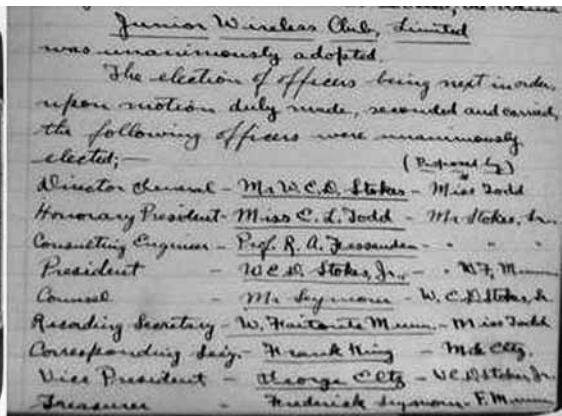 Junior Wireless Club, Limited
was unanimously adopted.
The election of officers being next in order,
upon motion duly made, seconded and carried,
the following officers were unanimously
elected;—
(Proposed by)
Director General - Mr W. E. D. Stokes - Miss Todd
Honorary President - Miss E. L. Todd - Mr Stokes, Sr.
Consulting Engineer - Prof. R. A. Fessenden - " " "
President - W. E. D. Stokes, Jr. - " W. F. Munn
Counsel - Mr Seymour - W. E. D. Stokes, Sr
Recording Secretary - W. Faitoute Munn - Miss Todd
Corresponding Secy. - Frank King - Mr Eltz.
Vice President - George Eltz - W. E. D. Stokes, Jr.
Treasurer - Frederick Seymour - F. Munn